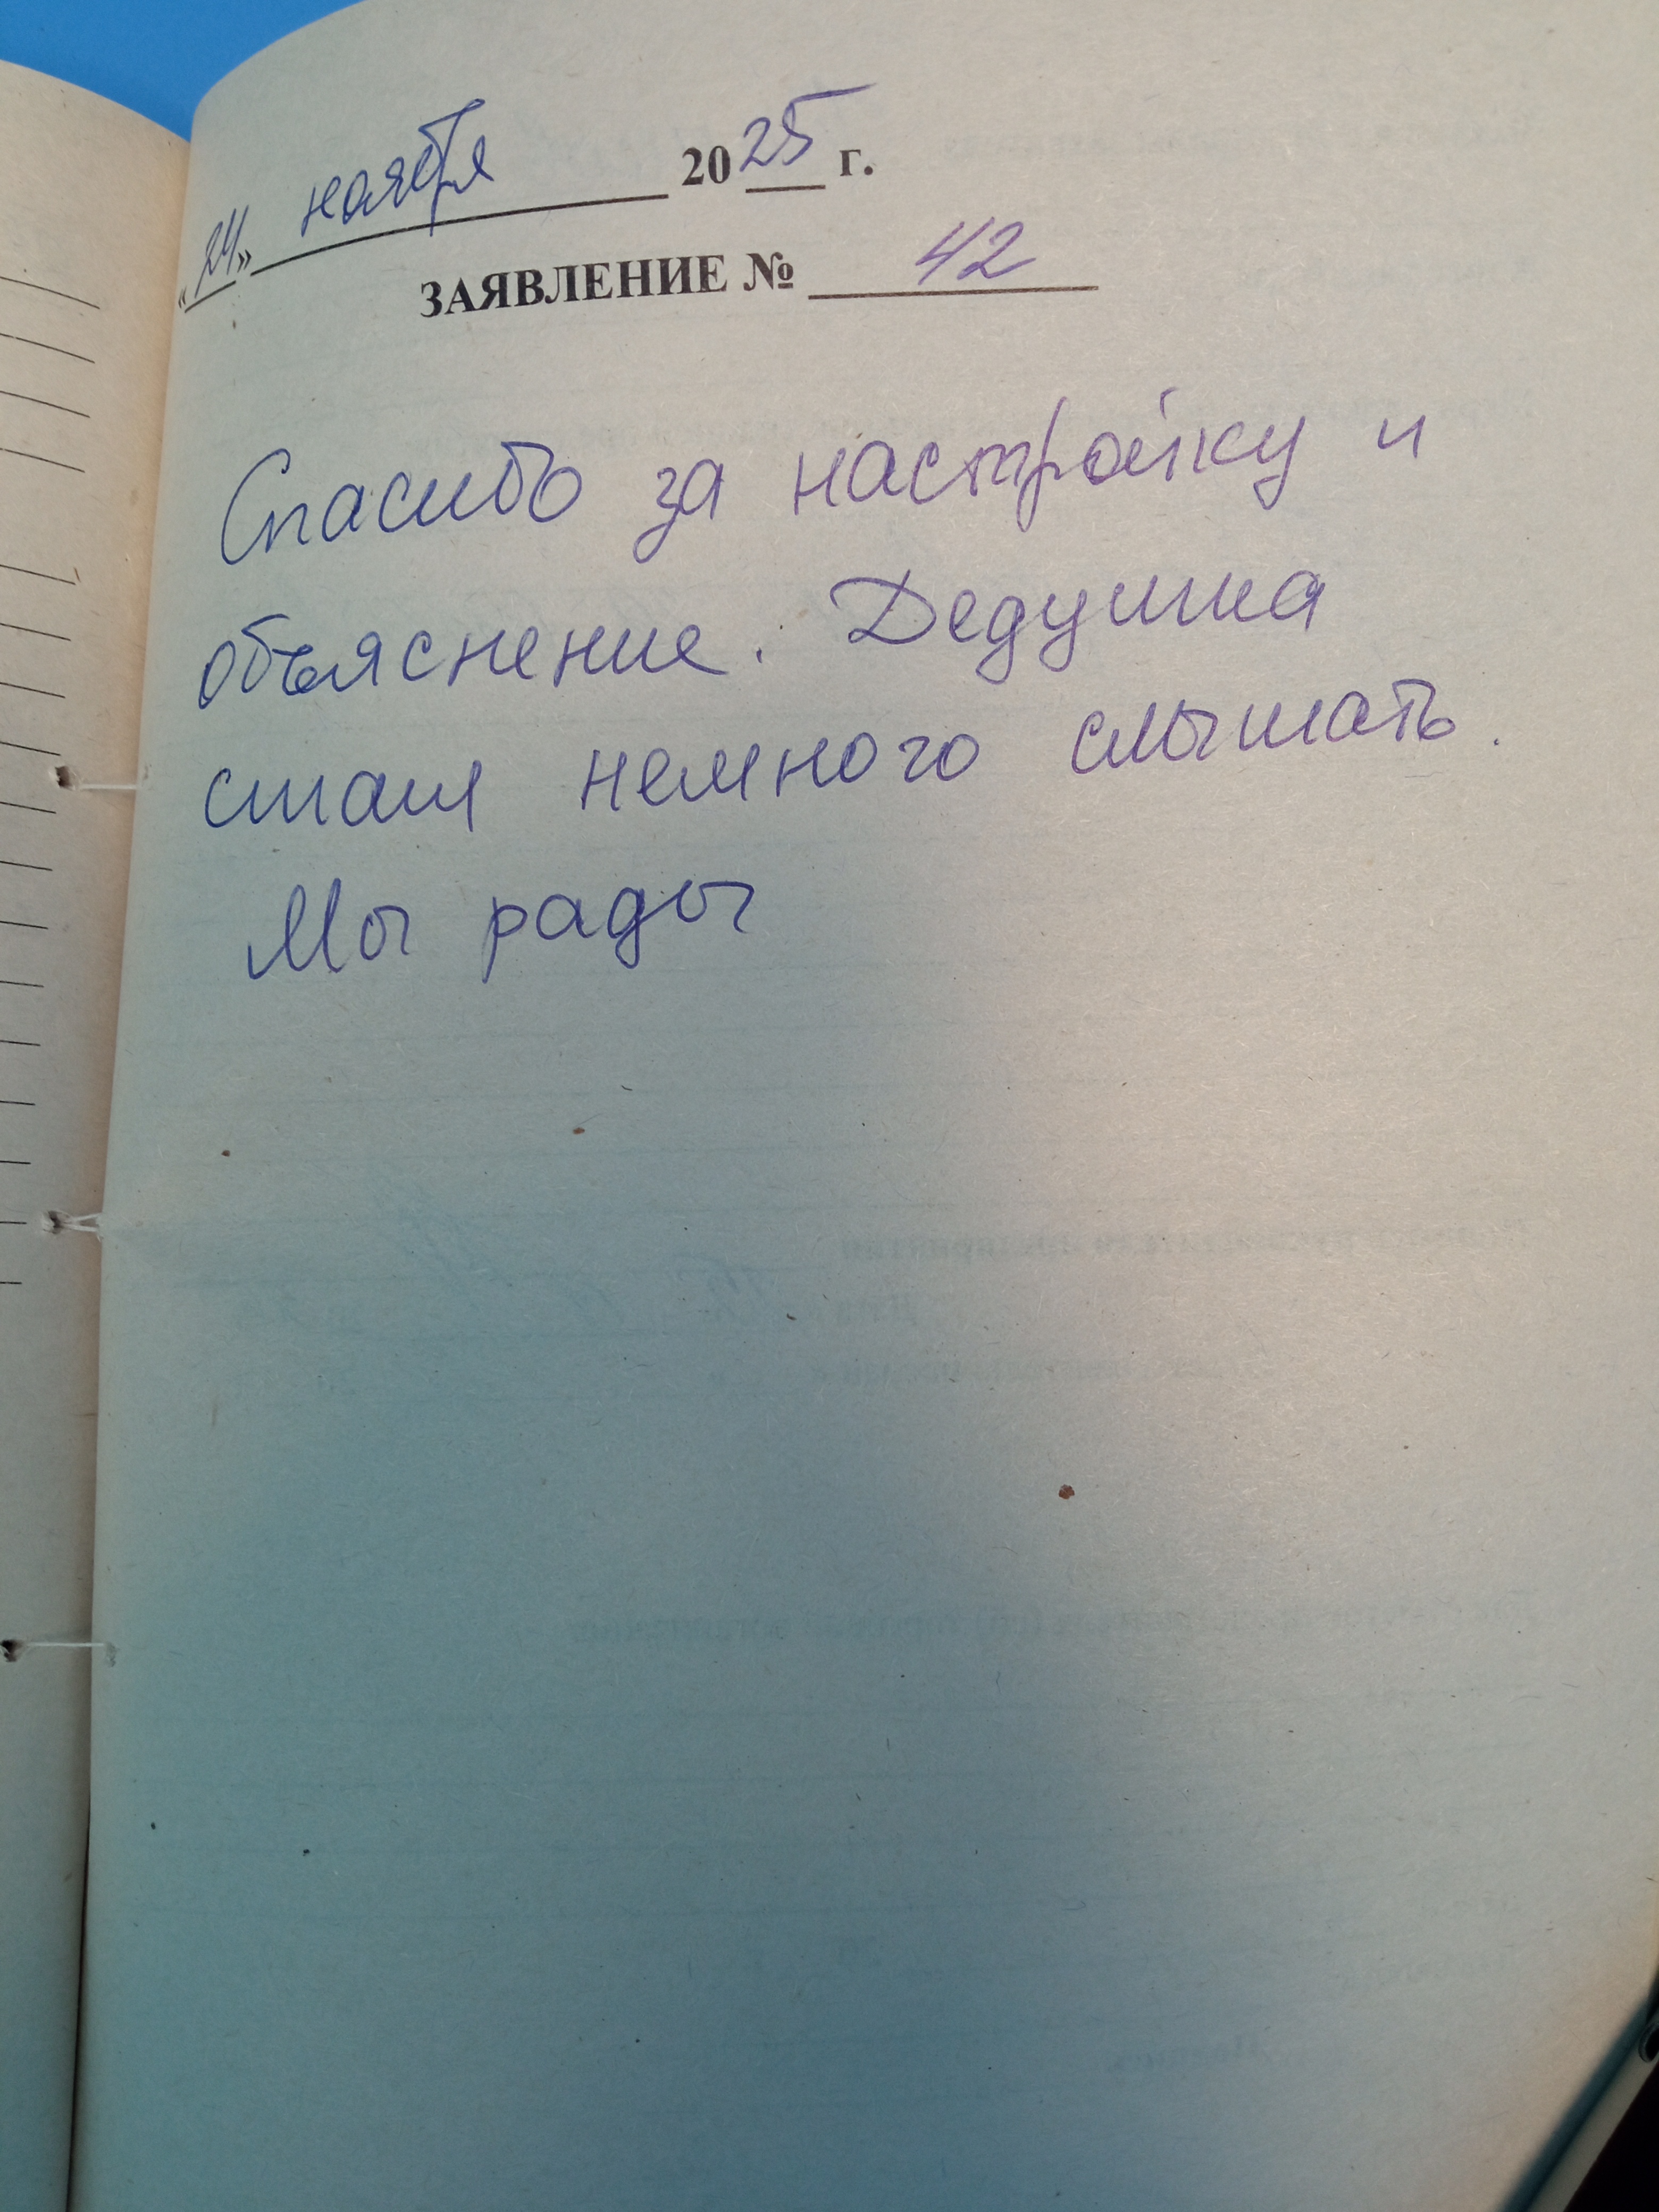 «24» ноября 2025 г.
ЗАЯВЛЕНИЕ № 42
Спасибо за настройку и
объяснение. Дедушка
стал немного слышать.
Мы рады